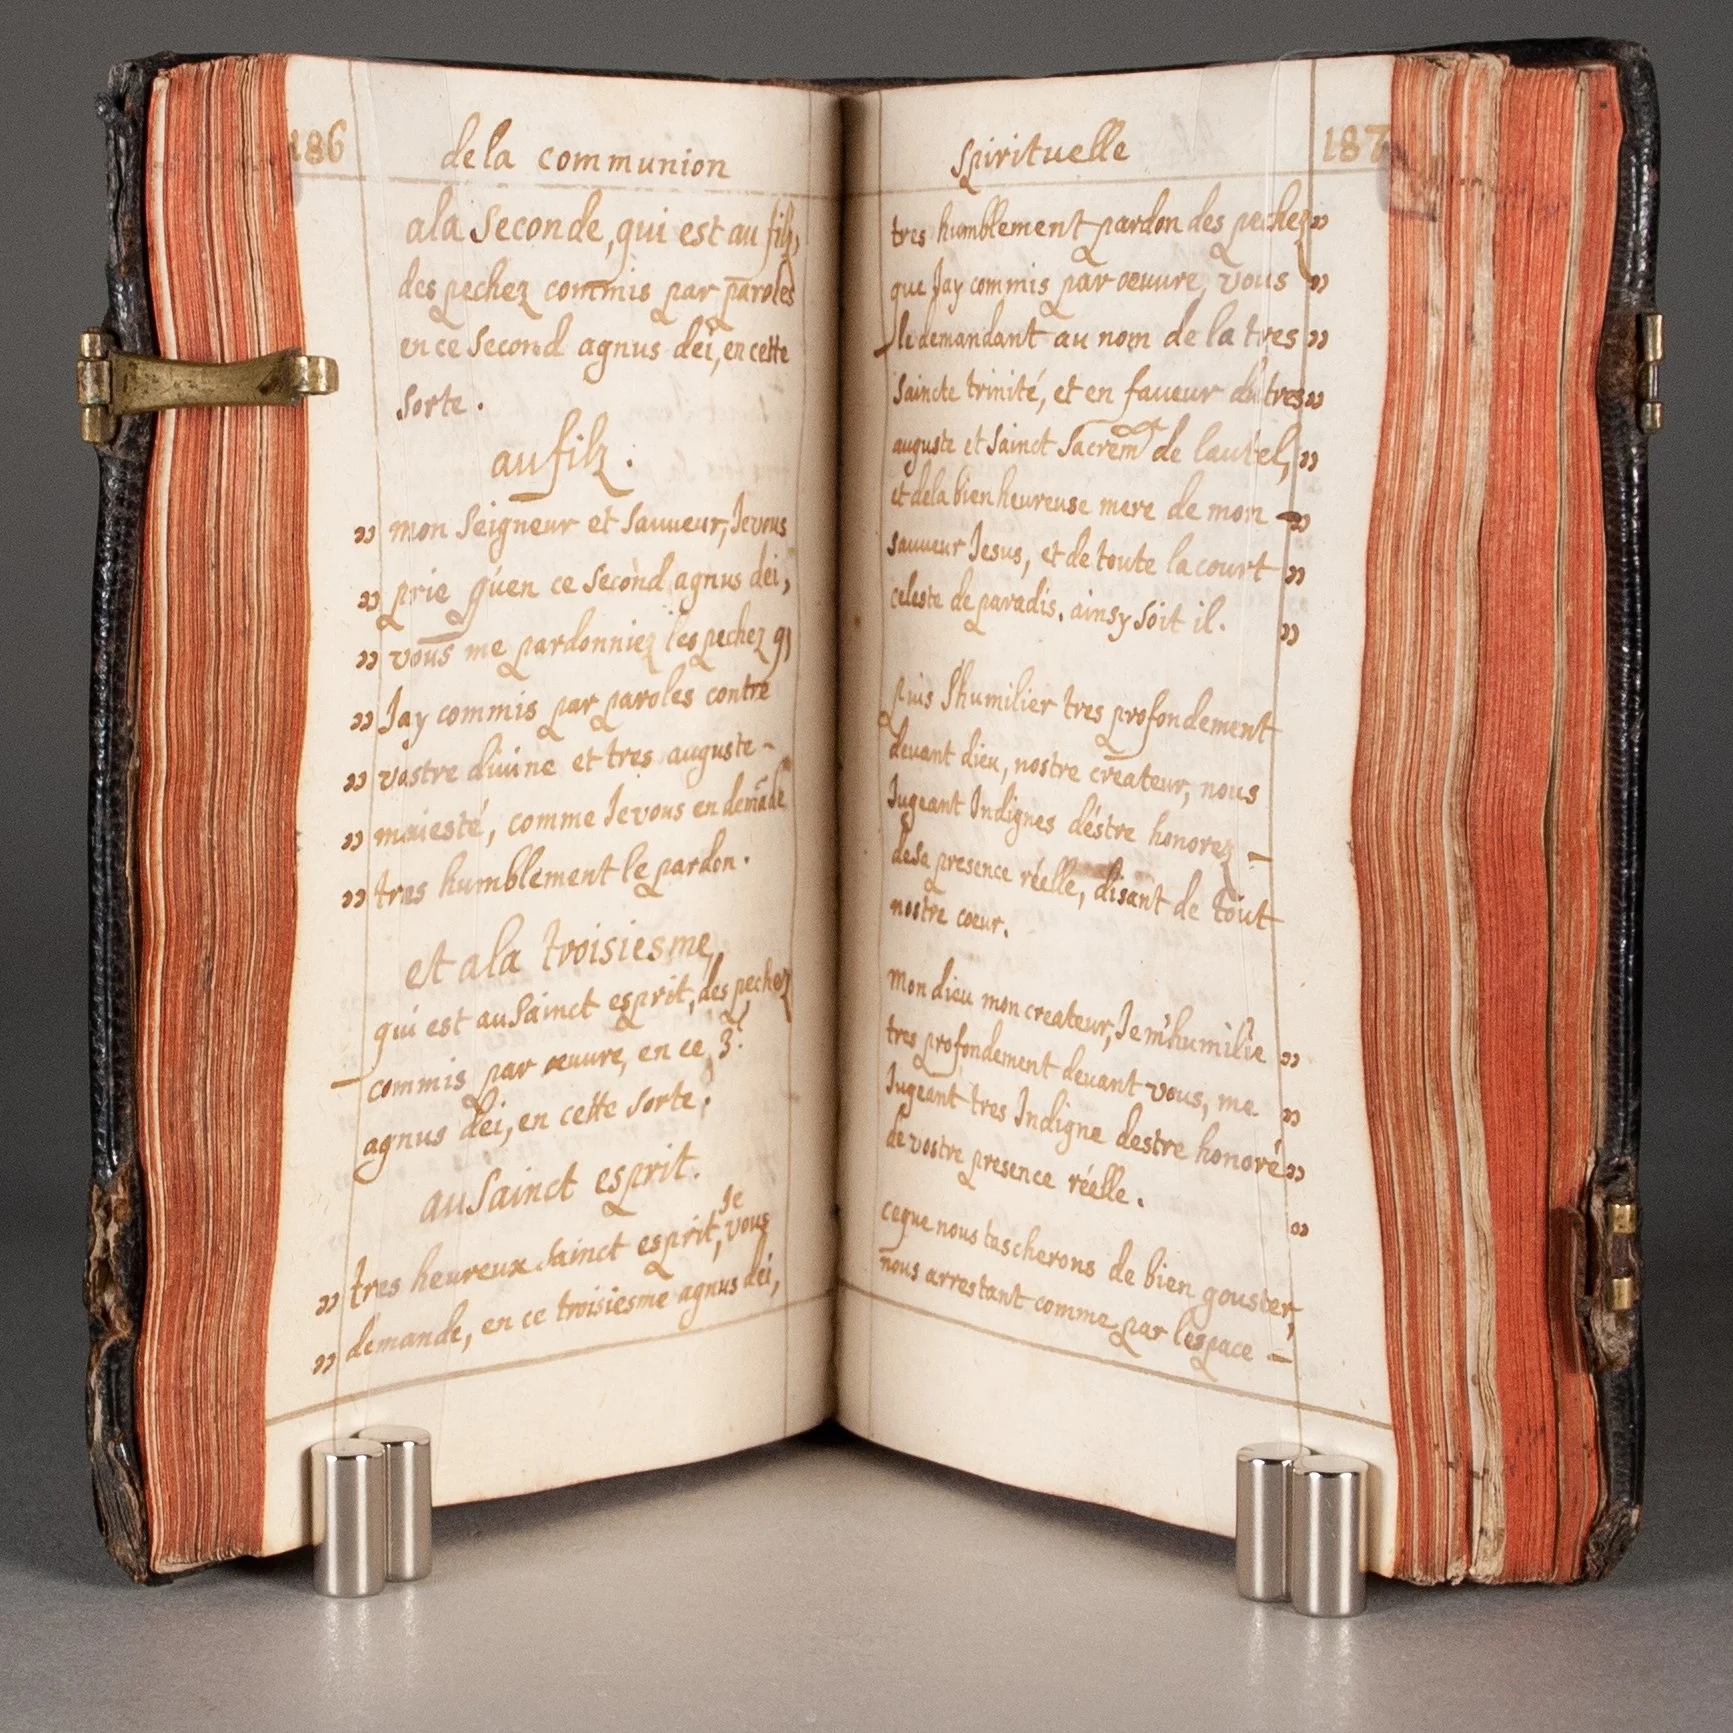 186
de la communion
a la Seconde, qui est au filz,
des pechez commis par paroles
en ce Second agnus dei, en cette
Sorte.
au filz.
» mon Seigneur et Sauueur, Je vous
» prie qu'en ce Second agnus dei,
» vous me pardonniez les pechez q,
» Jay commis par paroles contre
» vostre diuine et tres auguste -
» maiesté, comme Je vous en demāde
» tres humblement le pardon.
et a la troisiesme,
qui est au Sainct esprit, des pechez
commis par œuure, en ce 3.e
agnus dei, en cette Sorte.
au Sainct esprit.
» tres heureux Sainct esprit, Je vous
» demande, en ce troisiesme agnus dei,
Spirituelle
187
tres humblement pardon des pechez »
que Jay commis par œuure, vous »
le demandant au nom de la tres »
Saincte trinité, et en faueur du tres »
auguste et Sainct Sacrem de lautel, »
et de la bien heureuse mere de mon - »
Sauueur Jesus, et de toute la court »
celeste de paradis. ainsy Soit il. »
puis S'humilier tres profondement
deuant dieu, nostre createur, nous
Jugeant Indignes d'éstre honorez -
de sa presence réelle, disant de tout
nostre cœur.
mon dieu mon createur, Je m'humilie »
tres profondement deuant vous, me »
Jugeant tres Indigne destre honoré »
de vostre presence réelle. »
ce que nous tascherons de bien gouster,
nous arrestant comme par lespace -